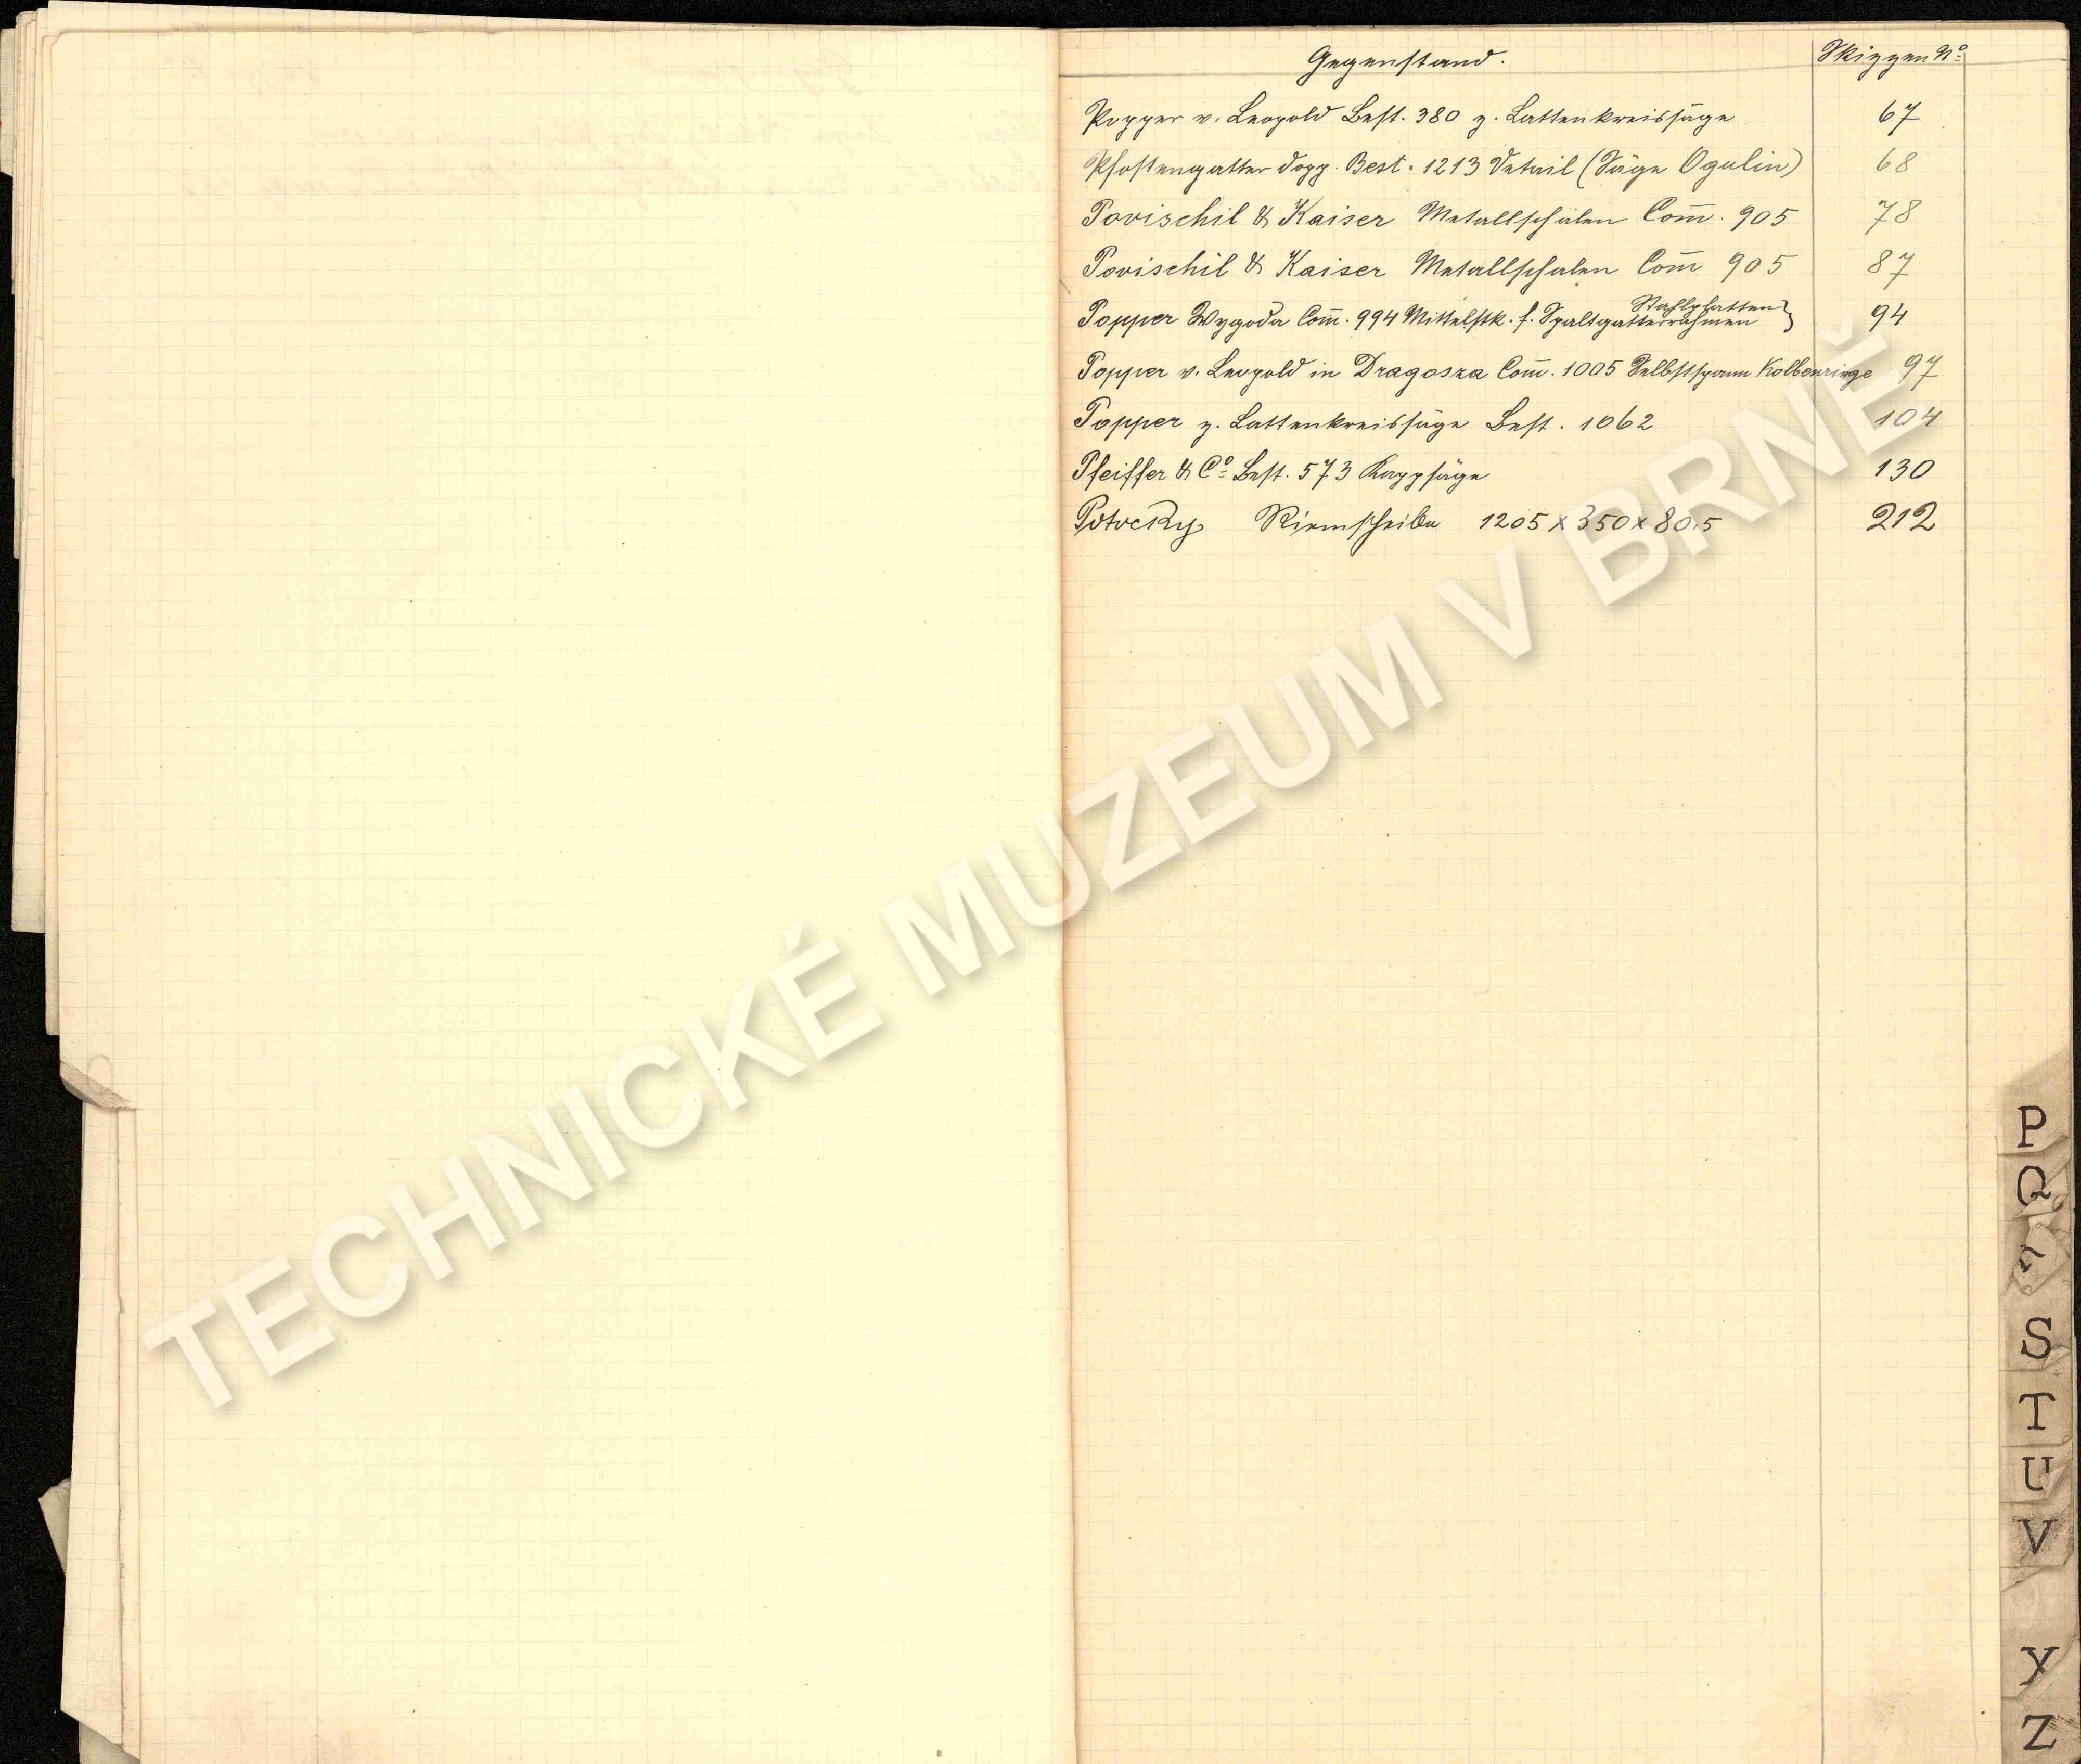 Gegenstand. Skizzen Nº
Popper v. Leopold Best. 380 z. Lattenkreissäge 67
Pfostengatter dopp. Best. 1213 Detail (Säge Ogulin) 68
Povischil & Kaiser Metallschalen Com̄. 905 78
Povischil & Kaiser Metallschalen Com̄ 905 87
Stahlplatten
Popper Wygoda Com̄. 994 Mittelstk. f. Spaltgatterrahmen } 94
Popper v. Leopold in Dragosza Com̄. 1005 Selbstspann Kolbenringe 97
Popper z. Lattenkreissäge Best. 1062 104
Pfeiffer & Cº Best. 573 Kappsäge 130
Potocky Riemscheibe 1205 x 350 x 80,5 212
TECHNICKÉ MUZEUM V BRNĚ
P
Q
S
T
U
V
Y
Z